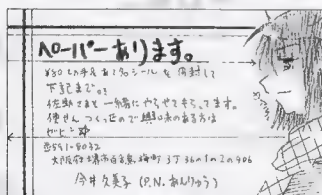 ペーパーあります。
¥80切手& あて名シールを同封して
下記まで。
佐野さまと一緒にやらせてもらってます。
便せんつくってるので興味のある方は
ゼヒ
〒591-8032
大阪府堺市百舌鳥梅町3丁36の1の2の906
今井久美子 (P.N. あんりゅう)